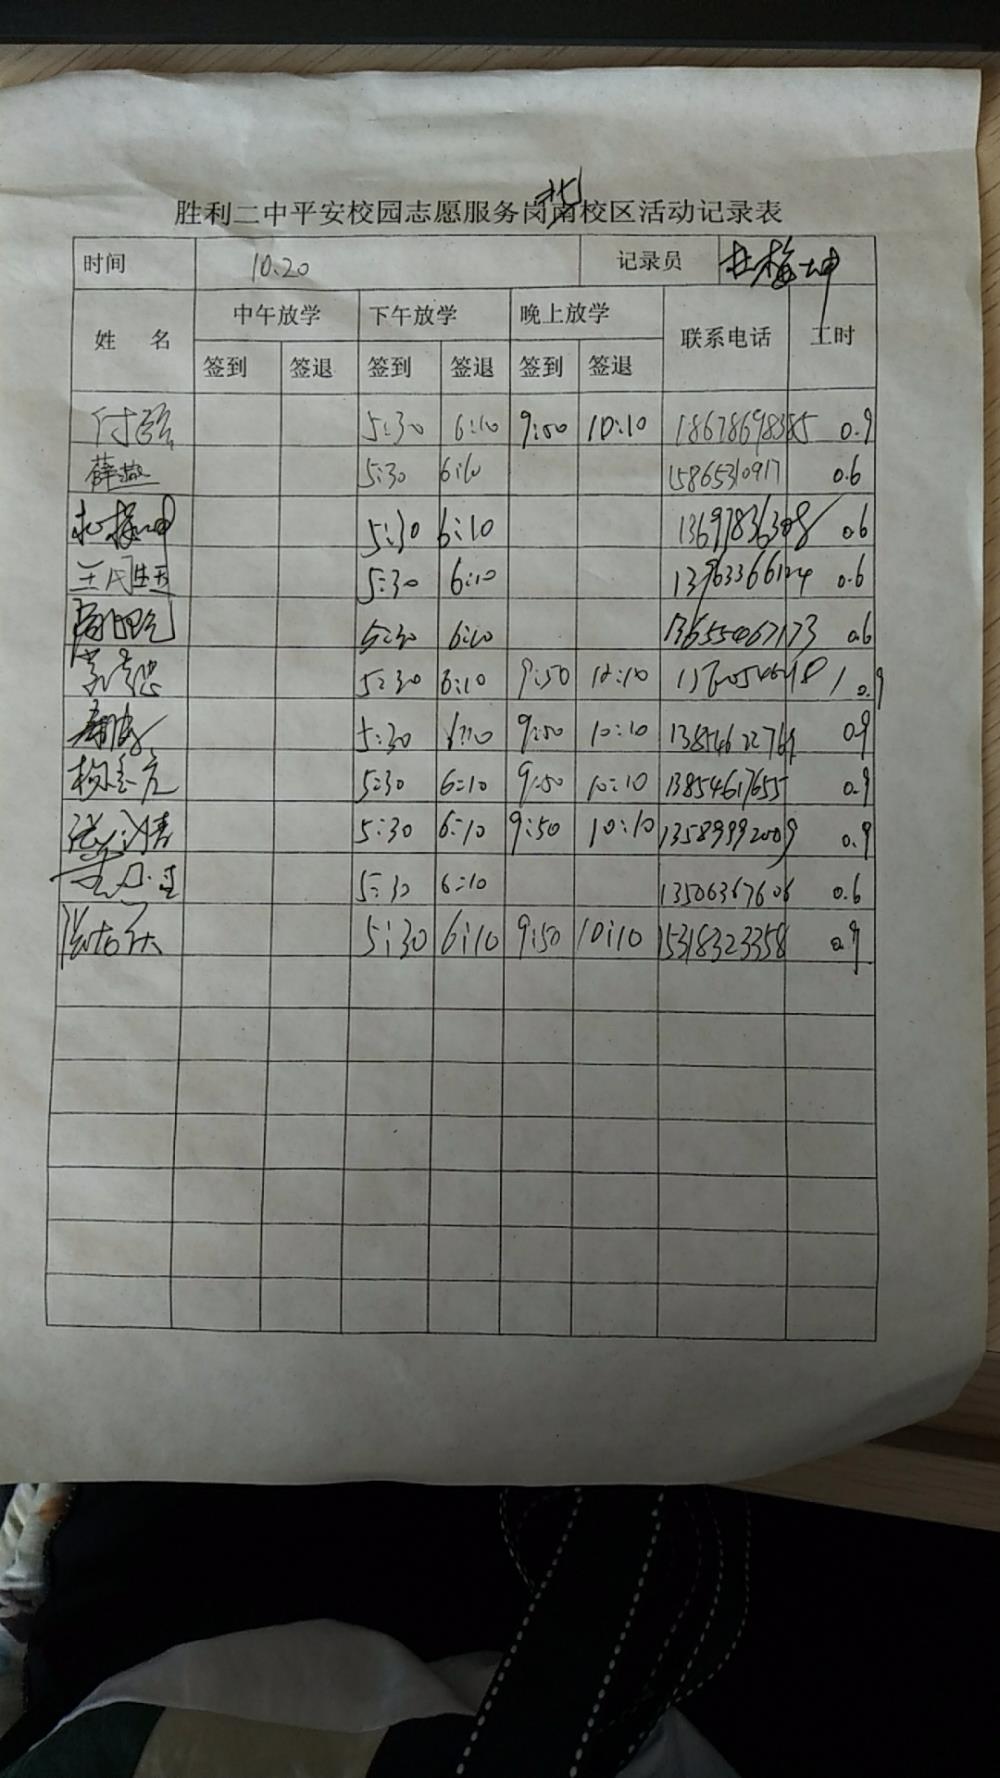 北
胜利二中平安校园志愿服务岗南校区活动记录表
时间 10.20 记录员 杜梅坤
姓 名 中午放学 下午放学 晚上放学 联系电话 工时
签到 签退 签到 签退 签到 签退
5:30 6:10 9:50 10:10 0.9
薛燕 5:30 6:10 15865310917 0.6
杜梅坤 5:30 6:10 0.6
王民生 5:30 6:10 0.6
5:30 6:10 13655467173 0.6
5:30 6:10 9:50 10:10 0.9
5:30 6:10 9:50 10:10 0.9
5:30 6:10 9:50 10:10 13854617655 0.9
5:30 6:10 9:50 10:10 13589992009 0.9
5:30 6:10 13506367606 0.6
5:30 6:10 9:50 10:10 15318323358 0.9